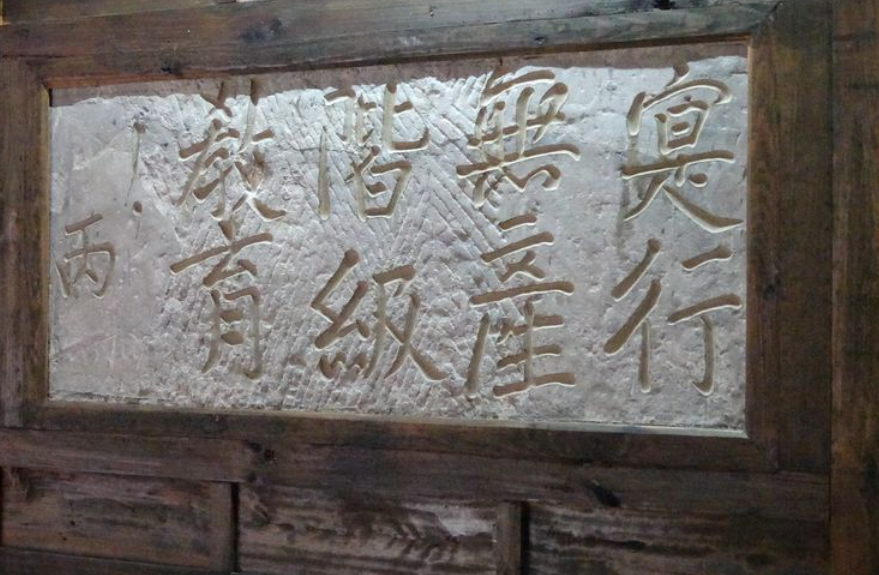 寔行
無產
階級
教育
！！
丙